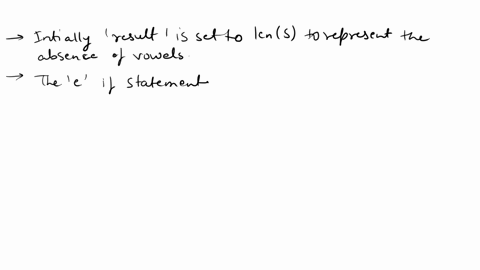 → Intially 'result' is set to len(S) to represent the
absence of vowels.
→ The 'e' if statement